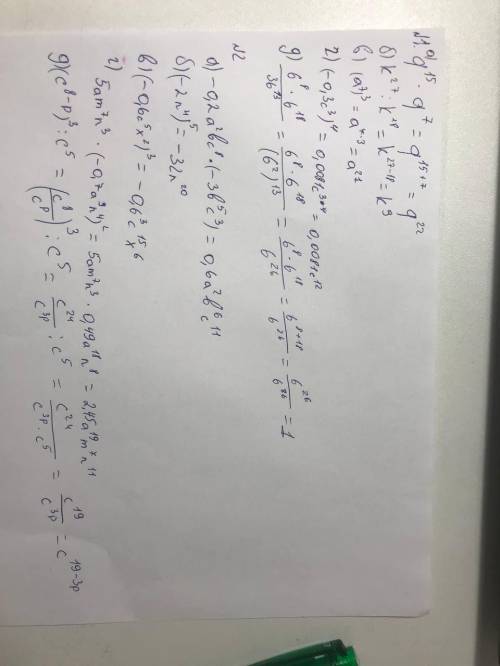 №1. a) q¹⁵ · q⁷ = q¹⁵⁺⁷ = q²²
б) k²⁷ : k¹⁸ = k²⁷⁻¹⁸ = k⁹
в) (a⁷)³ = a⁷·³ = a²⁷
г) (-0,3c³)⁴ = 0,0081c³*⁴ = 0,0081c¹²
д) 6⁸ · 6¹⁸ / 36¹³ = 6⁸ · 6¹⁸ / (6²)¹³ = 6⁸ · 6¹⁸ / 6²⁶ = 6⁸⁺¹⁸ / 6²⁶ = 6²⁶ / 6²⁶ = 1
№2
a) -0,2a²bc⁸ · (-3b⁵c³) = 0,6a²b⁶c¹¹
б) (-2n⁴)⁵ = -32n²⁰
в) (-0,6c⁵x²)³ = -0,6³c¹⁵x⁶
г)
5am⁷n³ · (-0,7a⁹n⁴)² = 5am⁷n³ · 0,49a¹⁸n⁸ = 2,45a¹⁹m⁷n¹¹
д) (c⁸-p)³ : c⁵ = (c⁸/cᵖ)³ : c⁵ = c²⁴/c³ᵖ : c⁵ = c²⁴/c³ᵖ · c⁵ = c¹⁹/c³ᵖ = c¹⁹⁻³ᵖ